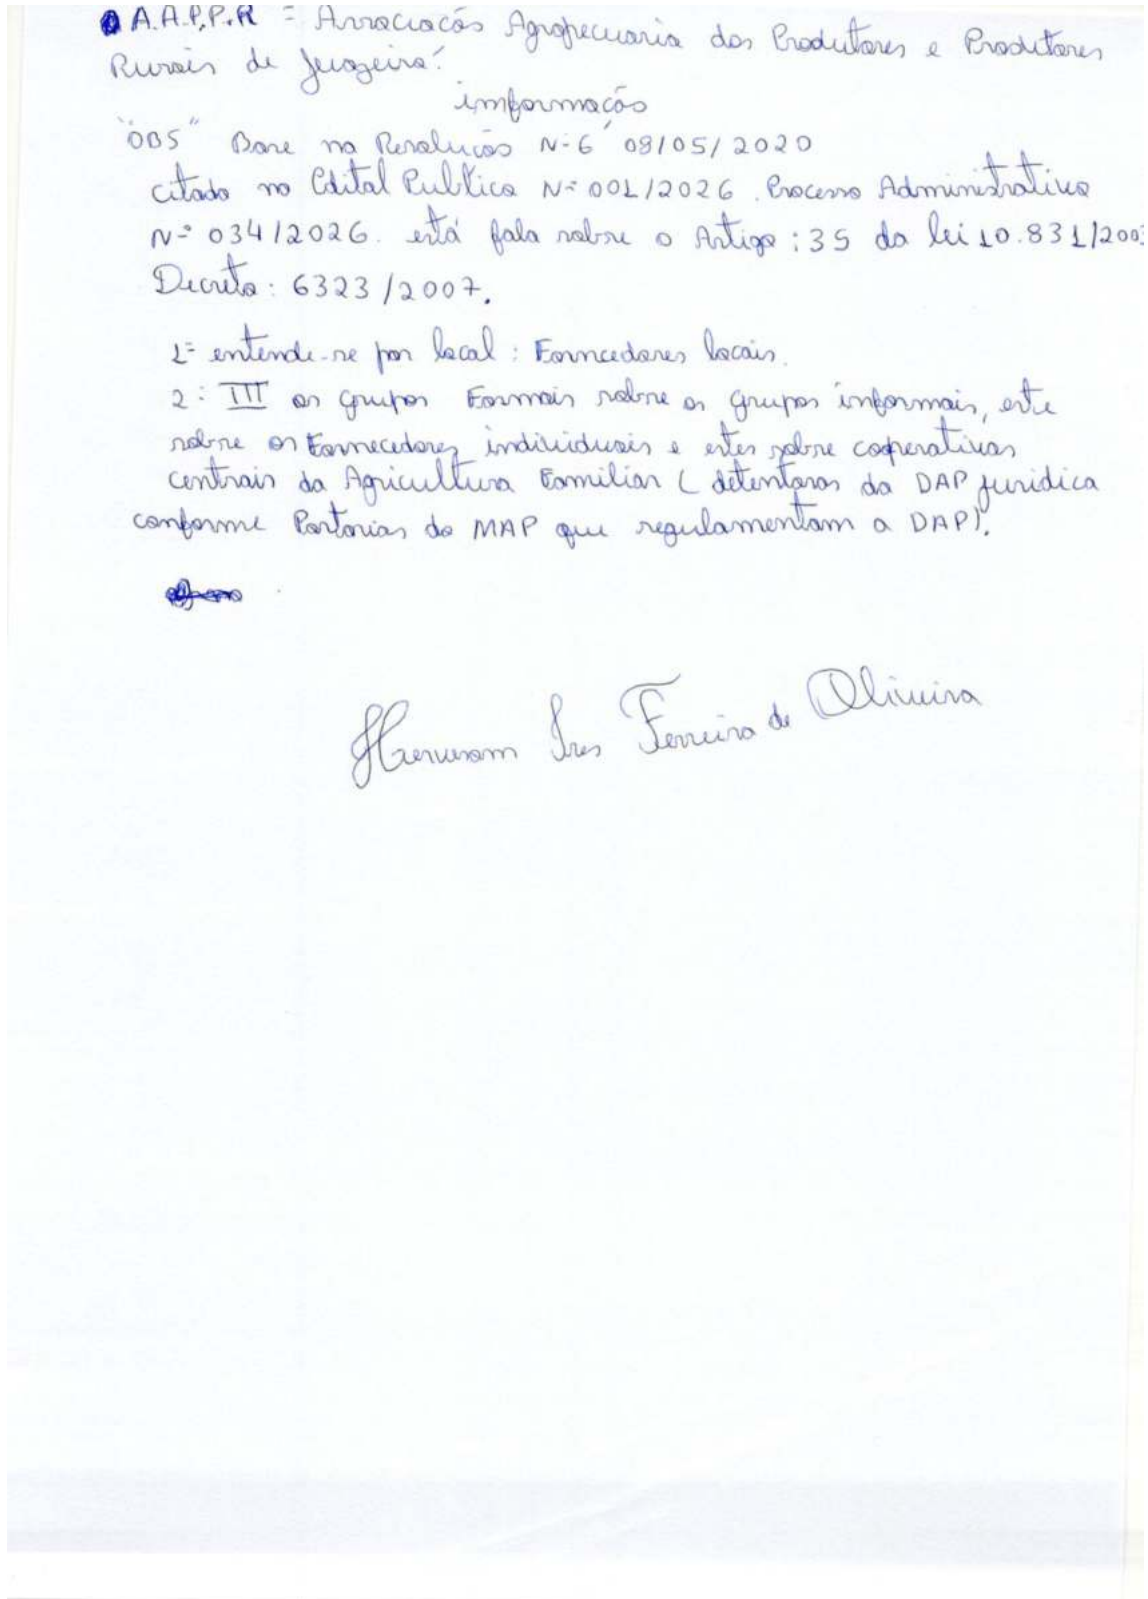 A.A.P.P.R = Associacãs Agropecuaria dos Produtores e Produtores
Rurais de Juazeiro.
imformacãs
"OBS" Base na Resolucãs Nº 6 08/05/2020
citado no Edital Publico Nº 001/2026. Processo Administrativo
Nº 034/2026. está fala sobre o Artigo: 35 da lei 10.831/2003
Decreto: 6323/2007.
1º entende-se por local: Forncedores locais.
2: III os grupos Formais sobre os grupos informais, este
sobre os Fornecedores individuais e estes sobre cooperativas
centrais da Agricultura Familiar ( detentoras da DAP juridica
conforme Portarias do MAP que regulamentam a DAP).
Ferreira de Oliveira